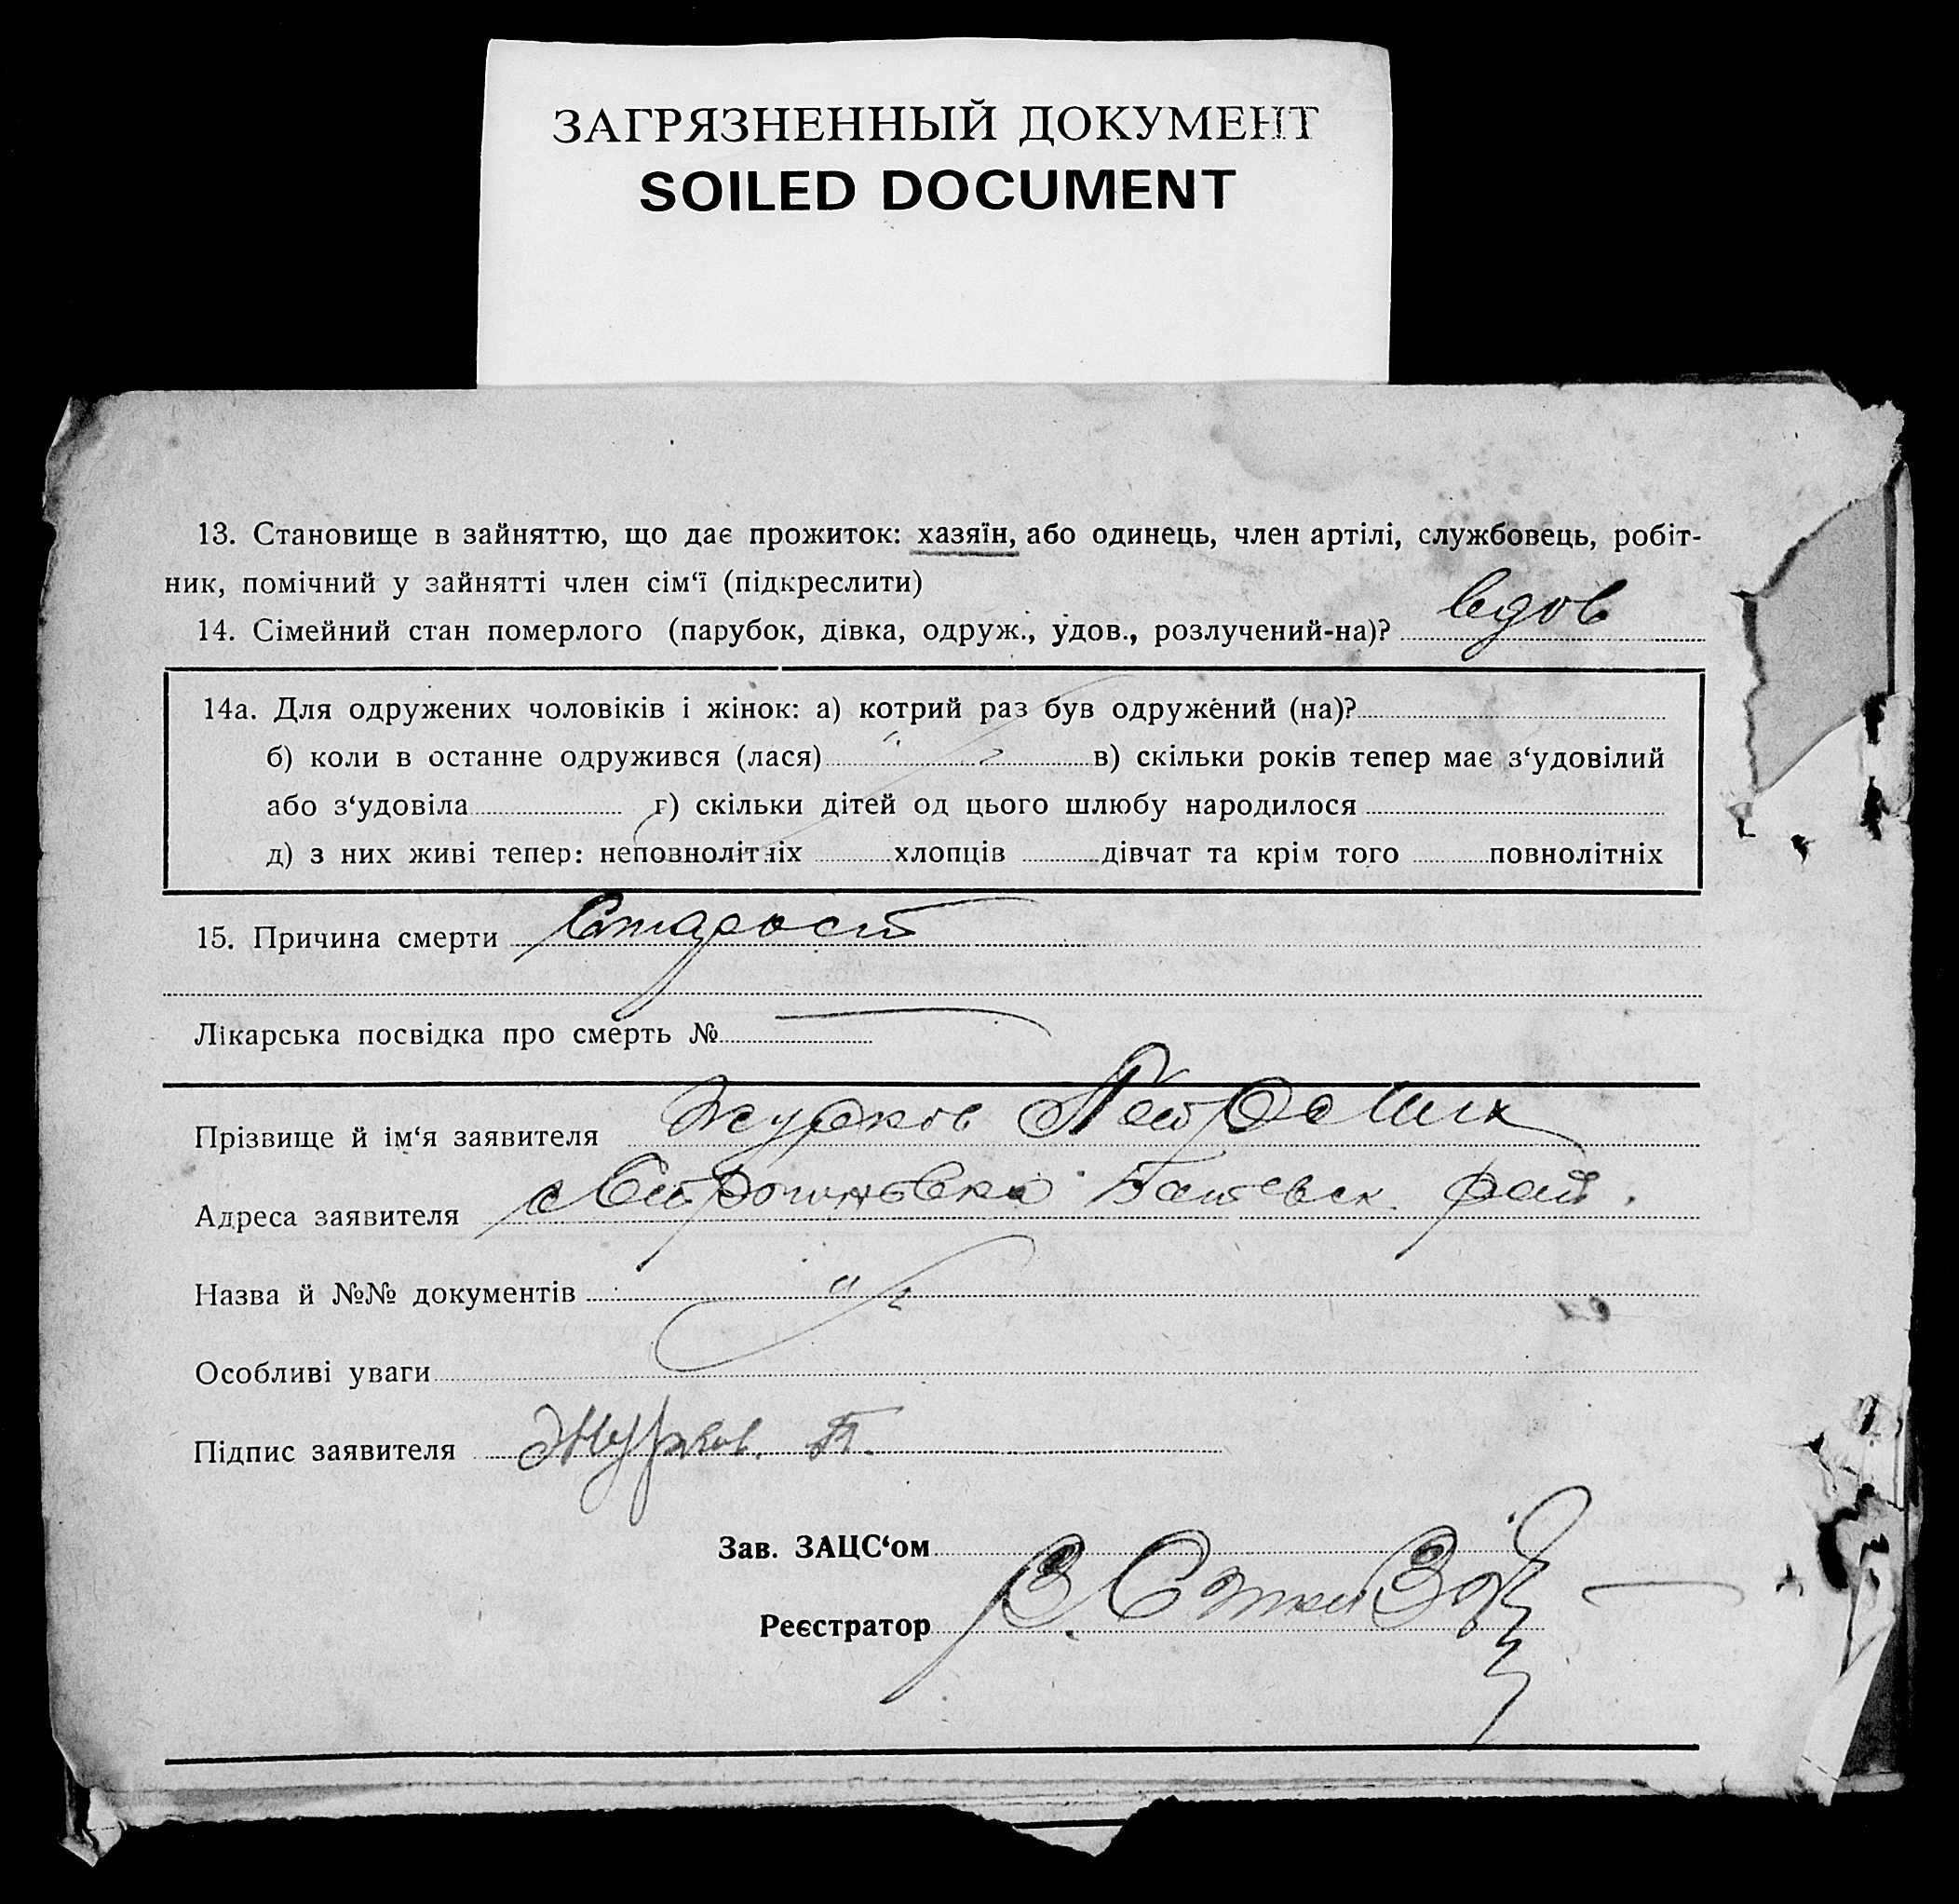 ЗАГРЯЗНЕННЫЙ ДОКУМЕНТ
SOILED DOCUMENT
13. Становище в зайняттю, що дає прожиток: хазяїн, або одинець, член артілі, службовець, робіт-
ник, помічний у зайнятті член сім‘ї (підкреслити)
14. Сімейний стан померлого (парубок, дівка, одруж., удов., розлучений-на)? вдов
14а. Для одружених чоловіків і жінок: а) котрий раз був одружений (на)?
б) коли в останне одружився (лася) в) скільки років тепер має з‘удовілий
або з‘удовіла г) скільки дітей од цього шлюбу народилося
д) з них живі тепер: неповнолітніх хлопців дівчат та крім того повнолітніх
15. Причина смерти Старост
Лікарська посвідка про смерть №
Прізвище й ім‘я заявителя Журков
Адреса заявителя с рай.
Назва й №№ документів
Особливі уваги
Підпис заявителя Журков. П.
Зав. ЗАЦС‘ом
Реєстратор